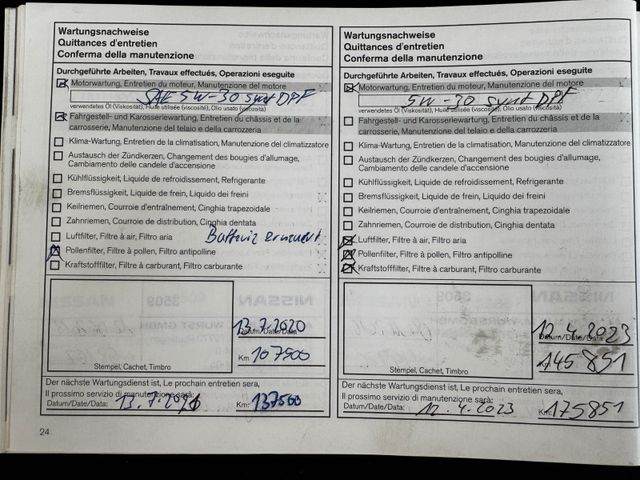 Wartungsnachweise
Quittances d'entretien
Conferma della manutenzione
Durchgeführte Arbeiten, Travaux effectués, Operazioni eseguite
Motorwartung, Entretien du moteur, Manutenzione del motore
SAE 5W-30 synt DPF
verwendetes Öl (Viskosität), Huile utilisée (viscosité), Olio usato (viscosità)
Fahrgestell- und Karosseriewartung, Entretien du châssis et de la
carrosserie, Manutenzione del telaio e della carrozzeria
Klima-Wartung, Entretien de la climatisation, Manutenzione del climatizzatore
Austausch der Zündkerzen, Changement des bougies d'allumage,
Cambiamento delle candele d'accensione
Kühlflüssigkeit, Liquide de refroidissement, Refrigerante
Bremsflüssigkeit, Liquide de frein, Liquido dei freini
Keilriemen, Courroie d'entraînement, Cinghia trapezoidale
Zahnriemen, Courroie de distribution, Cinghia dentata
Luftfilter, Filtre à air, Filtro aria
Pollenfilter, Filtre à pollen, Filtro antipolline
Kraftstofffilter, Filtre à carburant, Filtro carburante
13.7.2020
Datum/Date/Data
Km 107500
Stempel, Cachet, Timbro
Der nächste Wartungsdienst ist, Le prochain entretien sera,
Il prossimo servizio di manutenzione sarà:
Datum/Date/Data: 13.7.
Km: 137500
24
Wartungsnachweise
Quittances d'entretien
Conferma della manutenzione
Durchgeführte Arbeiten, Travaux effectués, Operazioni eseguite
Motorwartung, Entretien du moteur, Manutenzione del motore
5W-30 synt DPF
verwendetes Öl (Viskosität), Huile utilisée (viscosité), Olio usato (viscosità)
Fahrgestell- und Karosseriewartung, Entretien du châssis et de la
carrosserie, Manutenzione del telaio e della carrozzeria
Klima-Wartung, Entretien de la climatisation, Manutenzione del climatizzatore
Austausch der Zündkerzen, Changement des bougies d'allumage,
Cambiamento delle candele d'accensione
Kühlflüssigkeit, Liquide de refroidissement, Refrigerante
Bremsflüssigkeit, Liquide de frein, Liquido dei freini
Keilriemen, Courroie d'entraînement, Cinghia trapezoidale
Zahnriemen, Courroie de distribution, Cinghia dentata
Luftfilter, Filtre à air, Filtro aria
Pollenfilter, Filtre à pollen, Filtro antipolline
Kraftstofffilter, Filtre à carburant, Filtro carburante
12.4.2023
Datum/Date/Data
Km 145851
Stempel, Cachet, Timbro
Der nächste Wartungsdienst ist, Le prochain entretien sera,
Il prossimo servizio di manutenzione sarà:
Datum/Date/Data: 12.4.2023
Km: 175851